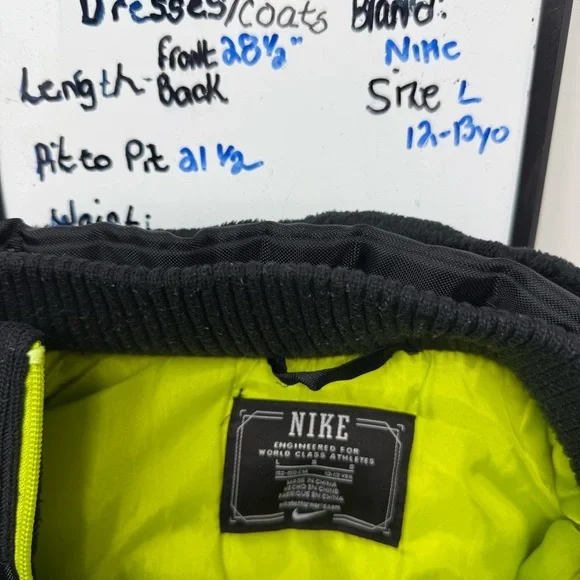 Dresses/Coats
Brand:
Front 28 1/2"
Nike
Length- Back
Size L
12-13yo
Pit to Pit 21 1/2
Waist:
NIKE
ENGINEERED FOR
WORLD CLASS ATHLETES
L
MADE IN CHINA
HECHO EN CHINA
FABRIQUÉ EN CHINE